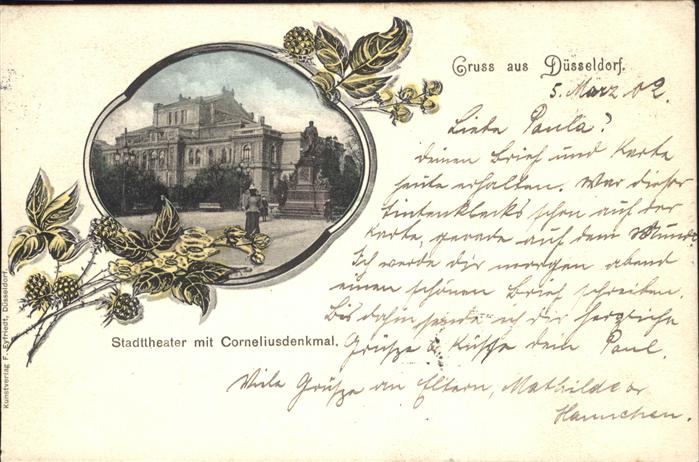 Gruss aus Düsseldorf.
5. März 02.
Liebe Paula!
deinen Brief und Karte
heute erhalten. War dieser
Tintenklecks schon auf der
Karte, gerade auf dem Munde
Ich werde dir morgen abend
einen schönen Brief schreiben.
Bis dahin sende ich dir herzliche
Grüsze & Küsse dein Paul.
Viele Grüsze an Eltern, Mathilde
Hannchen.
Stadttheater mit Corneliusdenkmal.
Kunstverlag F. Eyfriedt, Düsseldorf.